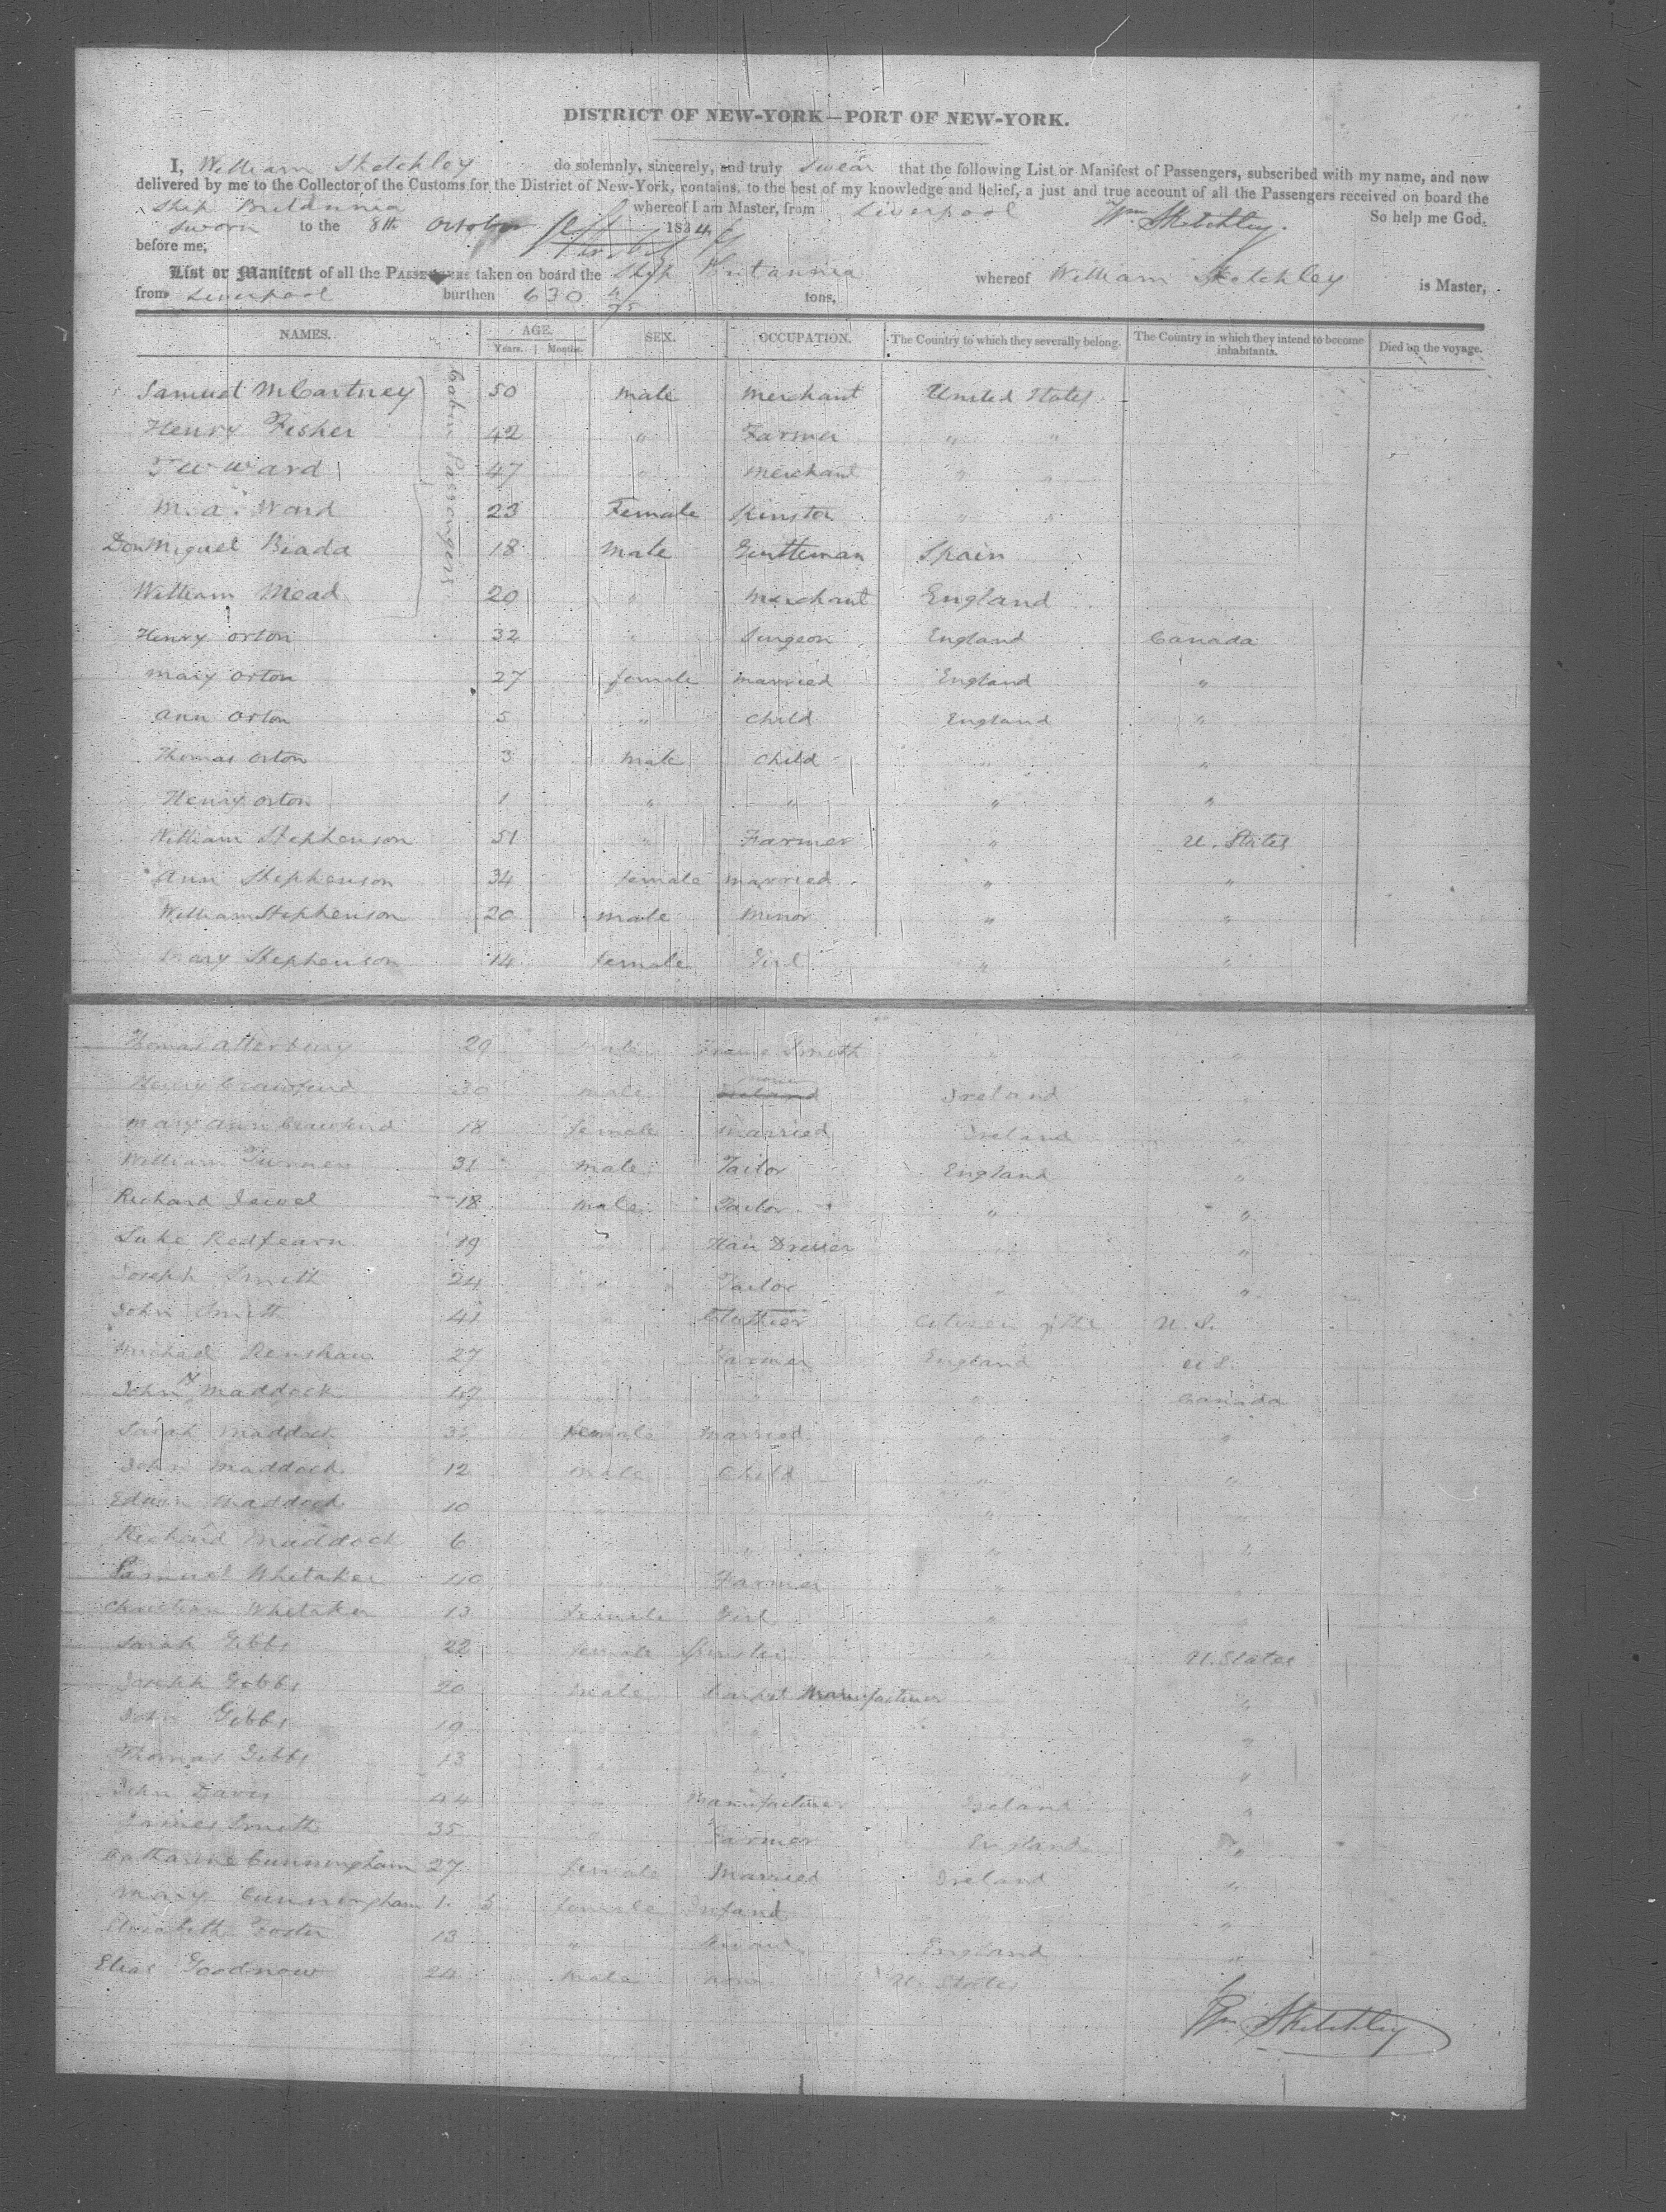 DISTRICT OF NEW-YORK—PORT OF NEW-YORK.
I, William Sketchley do solemnly, sincerely, and truly swear that the following List or Manifest of Passengers, subscribed with my name, and now
delivered by me to the Collector of the Customs for the District of New-York, contains, to the best of my knowledge and belief, a just and true account of all the Passengers received on board the
Ship Britannia whereof I am Master, from Liverpool Wm Sketchley. So help me God.
Sworn to the 8th October 1834
before me,
List or Manifest of all the PASSENGERS taken on board the Ship Britannia whereof William Sketchley is Master,
from Liverpool burthen 630 tons,
NAMES. AGE. SEX. OCCUPATION. The Country to which they severally belong. The Country in which they intend to become inhabitants. Died on the voyage.
Years. Months.
Cabin Passengers
Samuel McCartney 50 male Merchant United States
Henry Fisher 42 " Farmer " "
T W Ward 47 " Merchant " "
M. A. Ward 23 Female Spinster " "
Don Miguel Biada 18 Male Gentleman Spain
William Mead 20 " Merchant England
Henry Orton 32 " Surgeon England Canada
Mary Orton 27 female married England "
Ann Orton 5 " Child England "
Thomas Orton 3 Male Child " "
Henry Orton 1 " " " "
William Stephenson 51 " Farmer " U. States
Ann Stephenson 34 female married " "
William Stephenson 20 male Minor " "
Mary Stephenson 14 female Girl " "
Thomas Atterbury 29 male Frame Smith " "
Henry Crawford 30 male none Ireland "
Mary Ann Crawford 18 female married Ireland "
William 31 male Tailor England "
Richard Jewel 18 male Tailor " "
Luke Redfearn 19 " Hair Dresser " "
Joseph Smith 24 " Tailor " "
John Smith 41 " Clothier Citizen of the U. S.
Michael Renshaw 27 " Farmer England U S.
John Maddock " " " Canada
Sarah Maddock female Married " "
John Maddock 12 male Child " "
Edwin Maddock 10 " " "
Richard Maddock 6 " " "
Samuel Whitaker 40 " Farmer " "
Christian Whitaker 13 female Girl " "
Sarah Gibbs 22 female Spinster " U. States
Joseph Gibbs 20 male Carpet Manufacturer "
John Gibbs 19 " "
Thomas Gibbs 13 " " "
John Davis 44 " Manufacturer Ireland "
James Smith 35 " Farmer England "
Catharine Cunningham 27 female Married Ireland "
Mary Cunningham 1. 5 female Infant "
Elizabeth Foster 13 " England "
Elias Goodnow 24 Male none U. States
Wm Sketchley